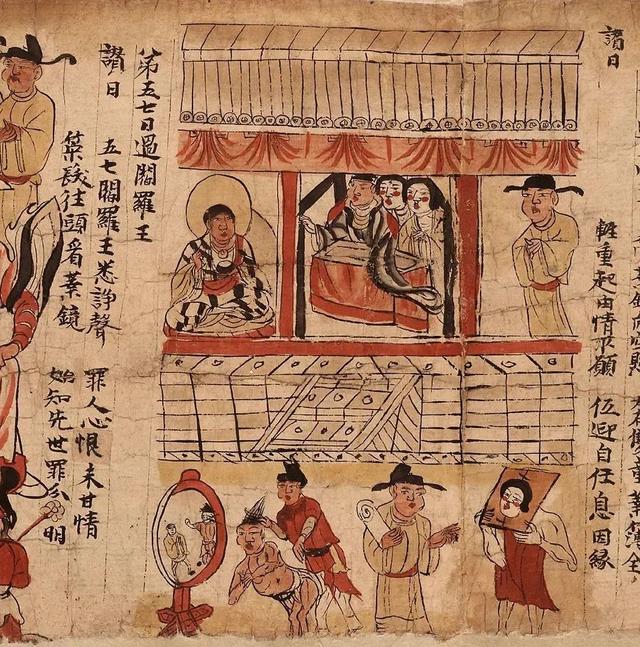 讃曰
輕重起由情所願 伍迎自任息因縁
第五七日過閻羅王
讃曰
五七閻羅王悉諍聲
罪人心恨未甘情
策髮往頭看業鏡
始知先世罪分明